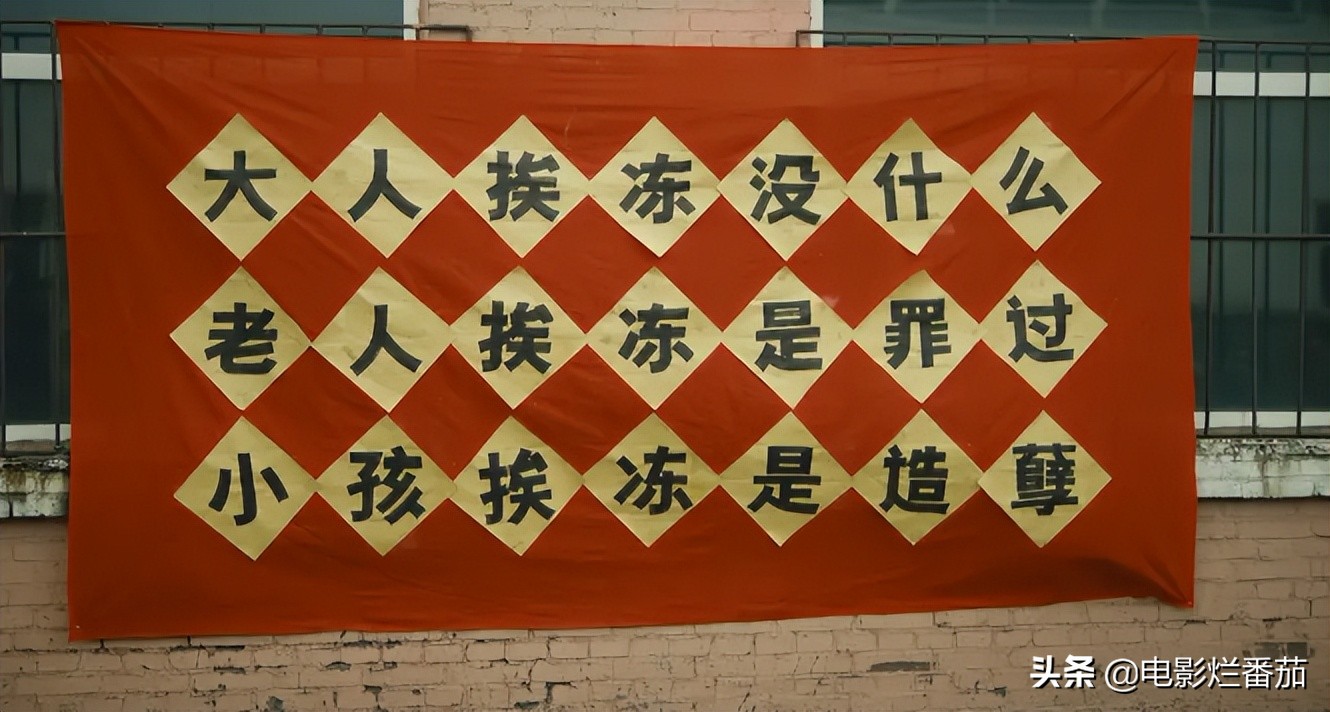 大人挨冻没什么
老人挨冻是罪过
小孩挨冻是造孽
头条 @电影烂番茄